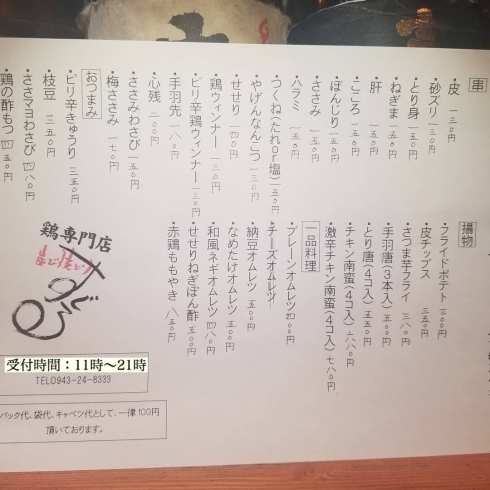 串
・皮 一三〇円
・砂ズリ 一三〇円
・とり身 一五〇円
・ねぎま 一五〇円
・肝 一五〇円
・こころ 一五〇円
・ぼんじり 一五〇円
・ささみ 一五〇円
・ハラミ 一五〇円
・つくね(たれor塩) 一五〇円
・やげんなんこう 一三〇円
・せせり 一四〇円
・鶏ウィンナー 一三〇円
・ピリ辛鶏ウィンナー 一三〇円
・手羽先 一八〇円
・心残 二〇〇円
・ささみわさび 一五〇円
・梅ささみ 一七〇円
おつまみ
・ピリ辛きゅうり 三五〇円
・枝豆 三五〇円
・ささマヨわさび 四八〇円
・鶏の酢もつ 四五〇円
揚物
・フライドポテト 三〇〇円
・皮チップス 三五〇円
・さつま芋フライ 三八〇円
・手羽唐(3本入) 五五〇円
・とり唐(4コ入) 五五〇円
・チキン南蛮(4コ入) 六八〇円
・激辛チキン南蛮(4コ入) 七八〇円
一品料理
・プレーンオムレツ 四〇〇円
・チーズオムレツ 五〇〇円
・納豆オムレツ 五〇〇円
・なめたけオムレツ 五〇〇円
・和風ネギオムレツ 四八〇円
・せせりねぎぽん酢 五五〇円
・赤鶏ももやき 八五〇円
鶏専門店
受付時間：11時〜21時
TEL0943-24-8333
パック代、袋代、キャベツ代として、一律100円
頂いております。